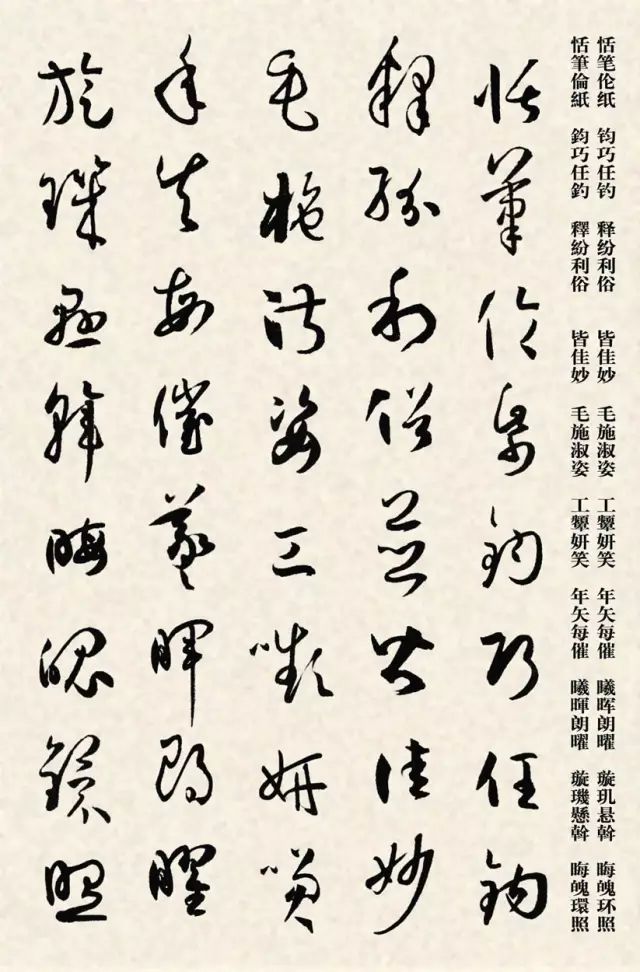 恬笔伦纸 钧巧任钓 释纷利俗 皆佳妙 毛施淑姿 工颦妍笑 年矢每催 曦晖朗曜 璇玑悬斡 晦魄环照
恬筆倫紙 鈞巧任釣 釋紛利俗 皆佳妙 毛施淑姿 工顰妍笑 年矢每催 曦暉朗曜 璇璣懸斡 晦魄環照
恬筆倫紙鈞巧任釣
釋紛利俗並皆佳妙
毛施淑姿工嚬妍咲
年矢每催羲暉朗曜
旋璣懸斡晦魄環照